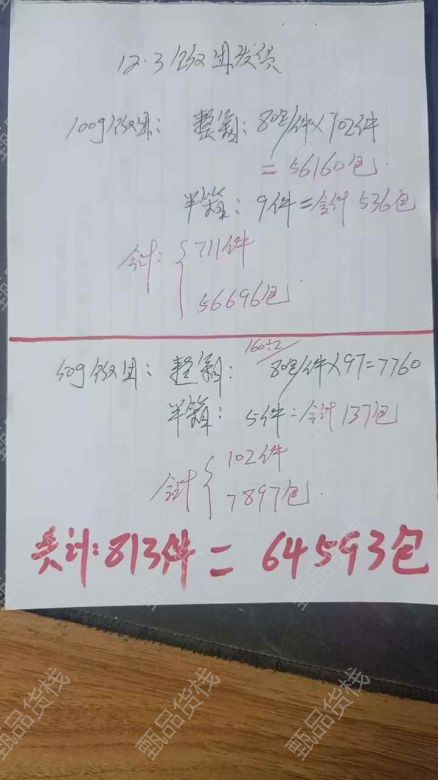 12.3饭团发货
100g饭团：整箱：80包/件×702件
=56160包.
半箱：9件=合计536包
合计：{711件
56696包.
160÷2
50g饭团：整箱：80包/件×97=7760
半箱：5件=合计137包
合计{102件
7897包.
共计:813件=64593包
甄品货栈